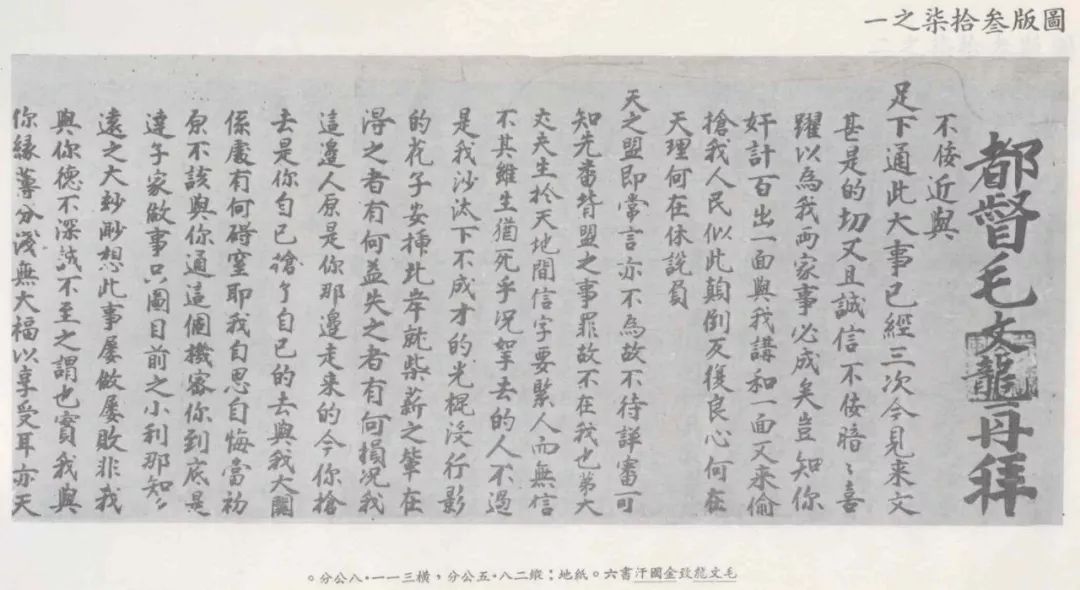 圖版叁拾柒之一
都督毛文龍再拜
不佞近與
足下通此大事已經三次今見来文
甚是的切又且誠信不佞暗〻喜
躍以為我两家事必成矣豈知你
奸計百出一面與我講和一面又来偷
搶我人民似此顛倒反復良心何在
天理何在休説負
天之盟即常言亦不為故不待詳審可
知先番背盟之事罪故不在我也第大
丈夫生於天地間信字要緊人而無信
不其雖生猶死乎况拏去的人不過
是我沙汰下不成才的光棍没行影
的花子安插北岸就柴薪之輩在
淂之者有何益失之者有何損况我
這邊人原是你那邊走来的今你搶
去是你自己搶了自己的去與我大關
係處有何碍窒即我自思自悔當初
原不該與你通這個機密你到底是
達子家做事只圖目前之小利那知
遠之大玅眇想此事屢做屢敗非我
與你德不深誠不至之謂也實我與
你緣薄分淺無大福以享受耳亦天
毛文龍致金國汗書六。紙地：縱二八・五公分，橫三一一・八公分。